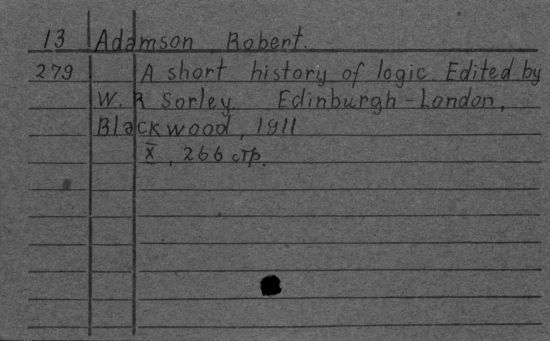 13 Adamson, Robert.
279 A short history of logic. Edited by
W. R Sorley. Edinburgh-London,
Blackwood, 1911
X, 266 стр.